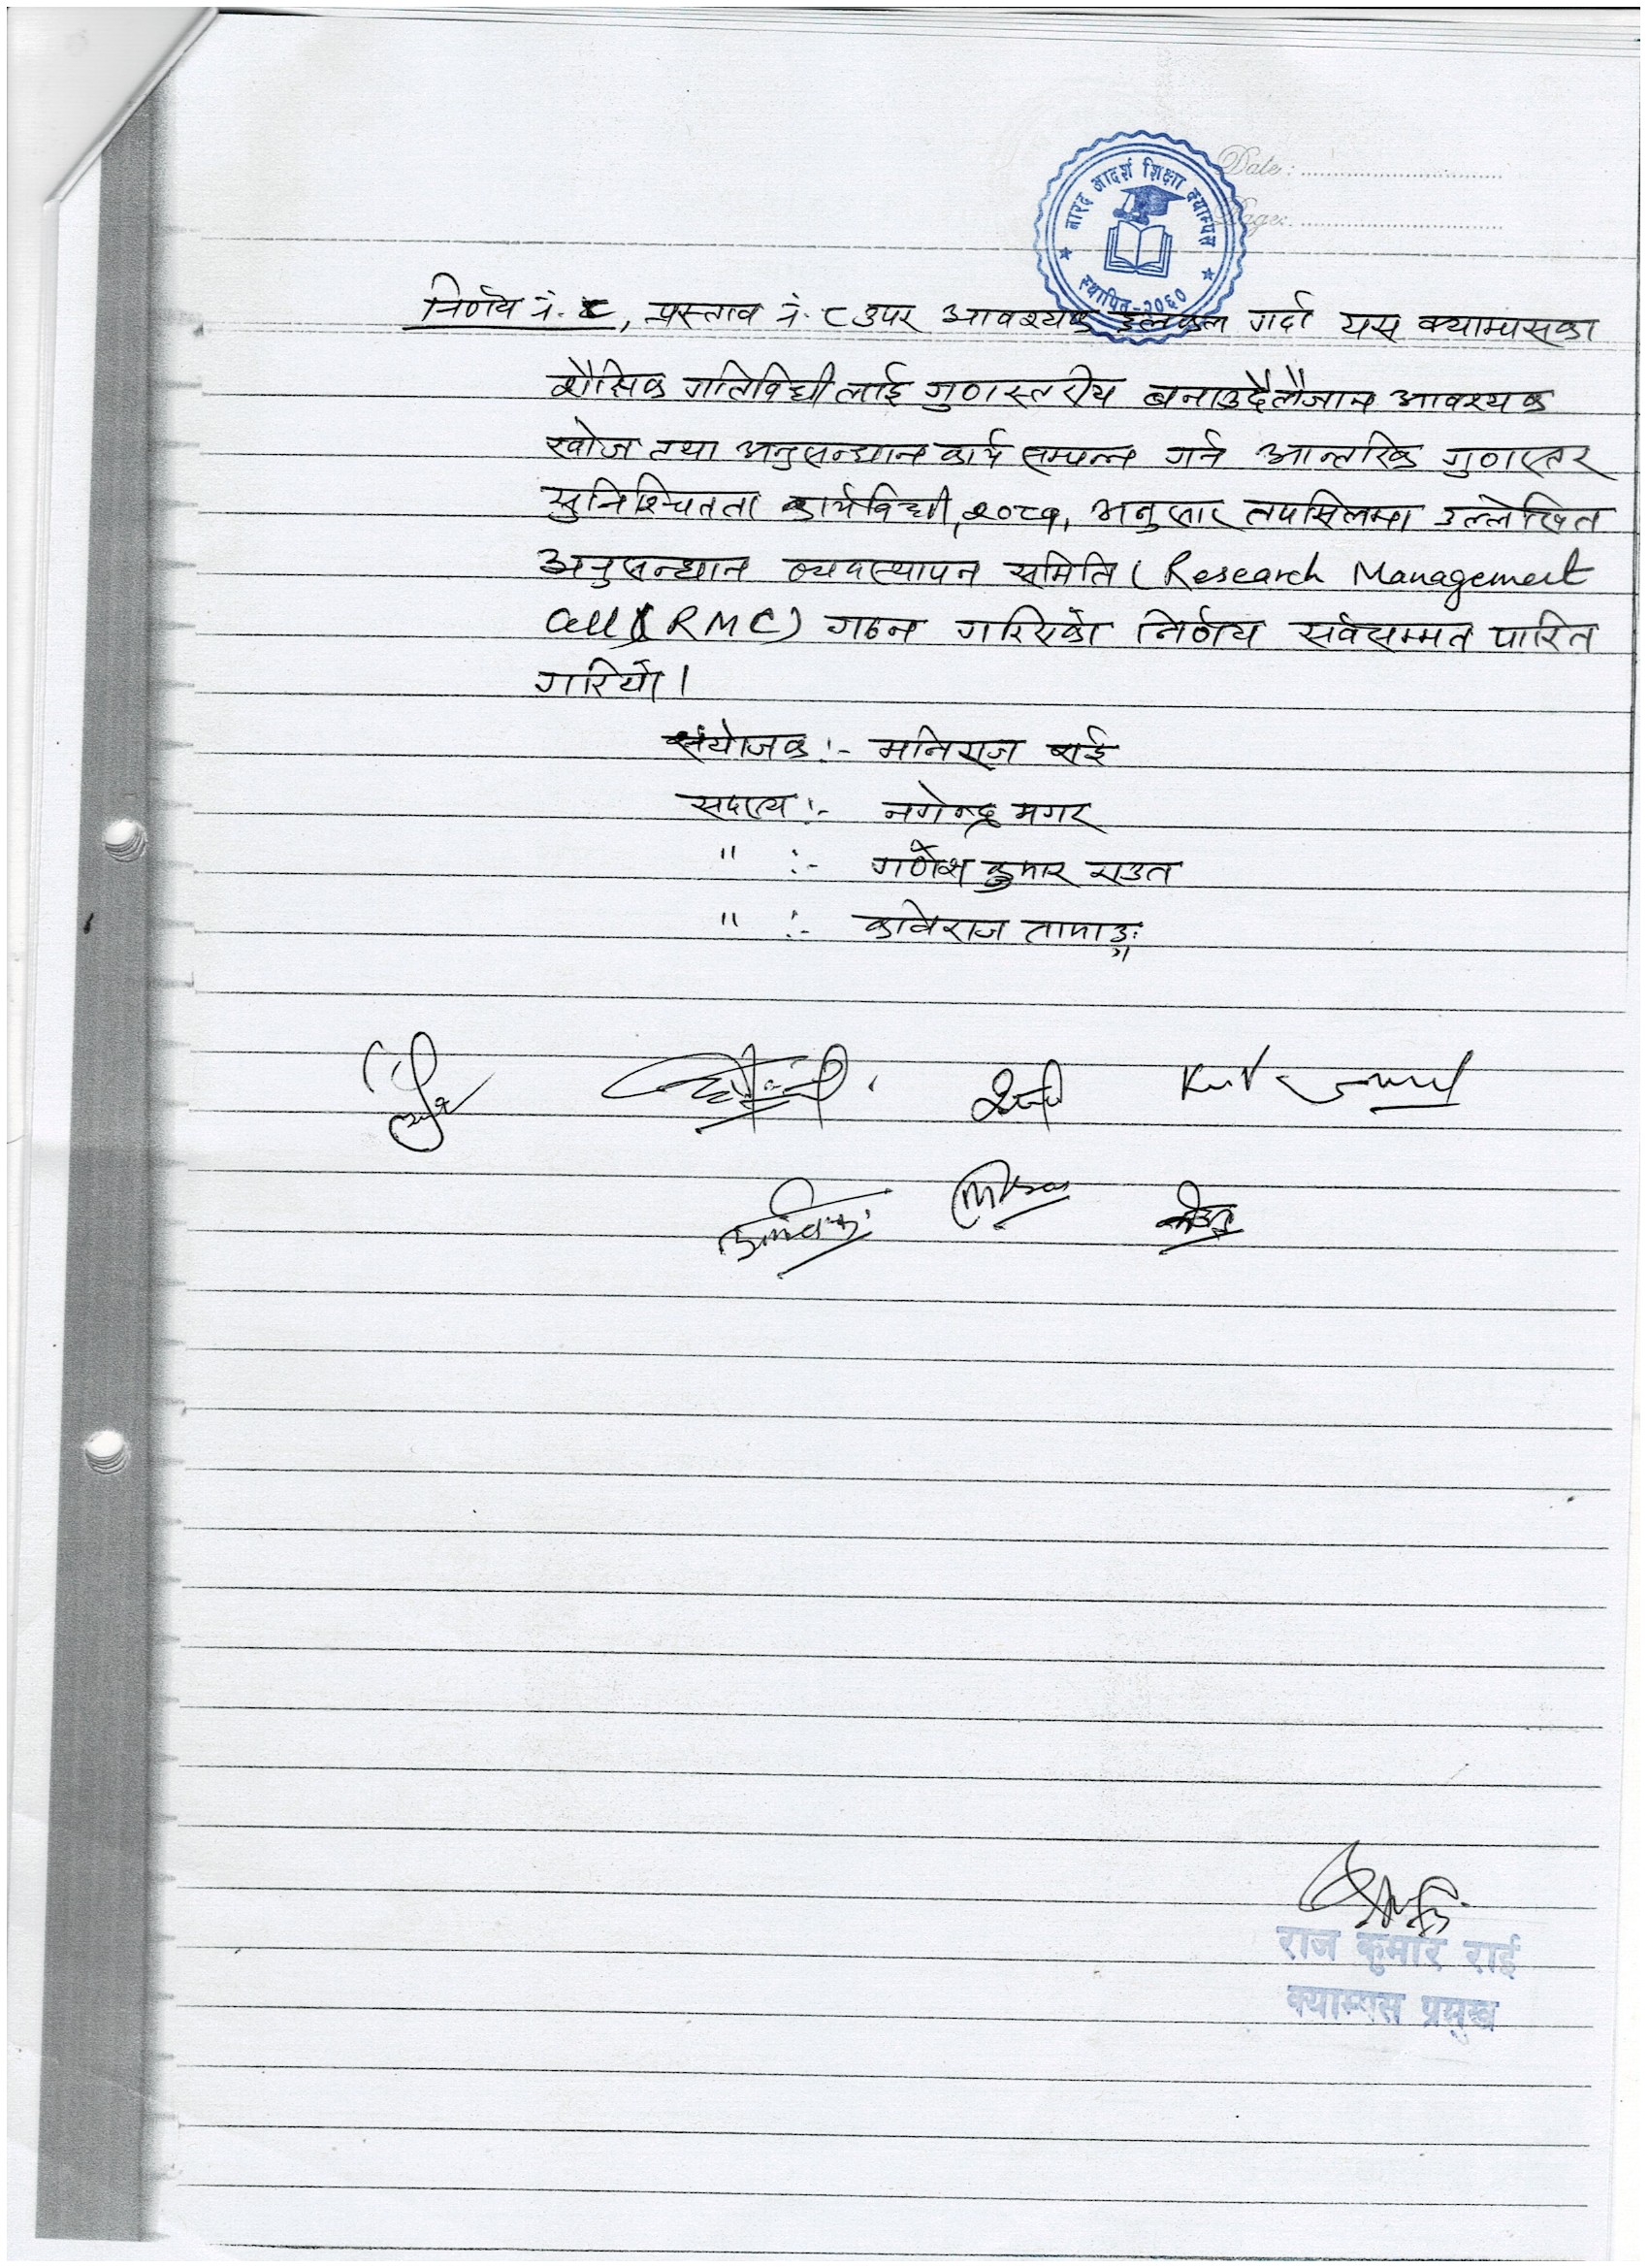 Date : ....................
Page: ....................
नारद आदर्श शिक्षा क्याम्पस
स्थापित-२०६०
निर्णय नं. ८, प्रस्ताव नं. ८ उपर आवश्यक छलफल गर्दा यस क्याम्पसका
शैक्षिक गतिविधी लाई गुणस्तरीय बनाउदै लैजान आवश्यक
खोज तथा अनुसन्धान कार्य सम्पन्न गर्न आन्तरिक गुणस्तर
सुनिश्चितता कार्यविधी, २०८१, अनुसार तपसिलमा उल्लेखित
अनुसन्धान व्यवस्थापन समिति ( Research Management
Cell ( RMC) गठन गरिएको निर्णय सर्वसम्मत पारित
गरियो ।
संयोजक :- मनिराज राई
सदस्य :- नगेन्द्र मगर
" :- गणेश कुमार राउत
" :- कविराज तामाङ्ग
राज कुमार राई
क्याम्पस प्रमुख